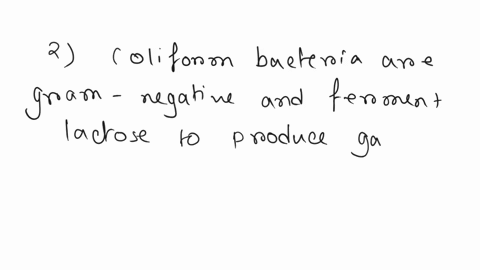 2) Coliform bacteria are
gram - negative and ferment
lactose to produce ga